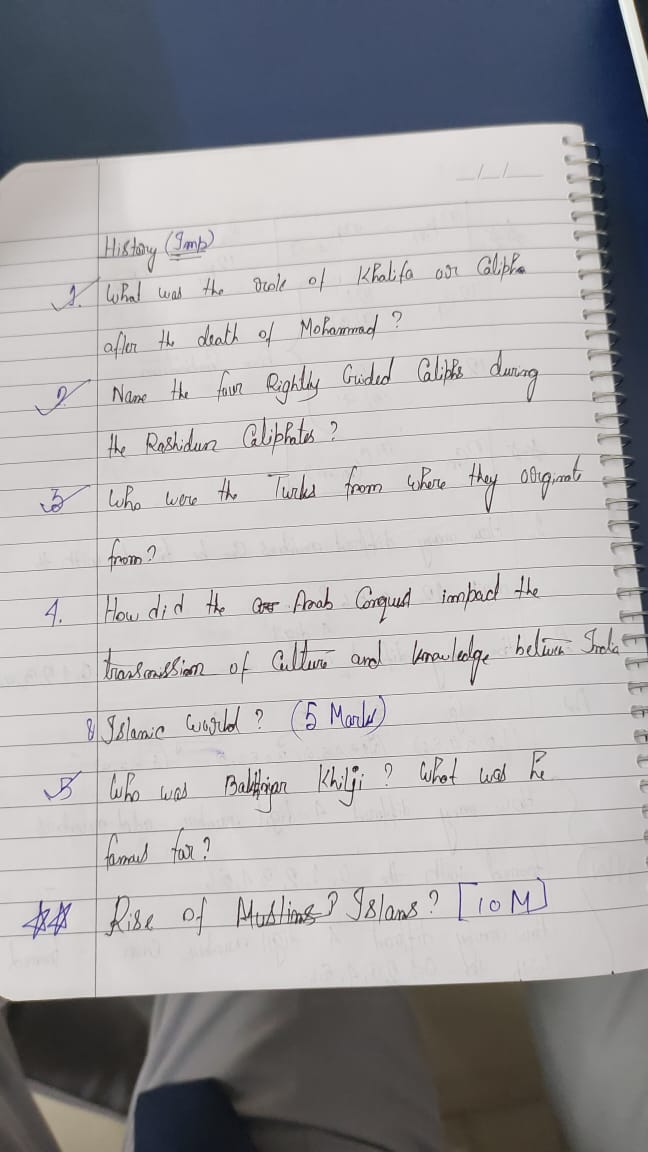 History (Imp)
1. What was the role of Khalifa or Caliph
after the death of Mohammad ?
2. Name the four Rightly Guided Caliphs during
the Rashidun Caliphates ?
3 Who were the Turks from where they originat
from ?
4. How did the Arab Conquest impact the
transmission of Culture and knowledge between India
& Islamic world ? (5 Marks)
5 Who was Bakhtiyar Khilji ? What was he
famous for ?
Rise of Muslims ? Islams ? [10 M]